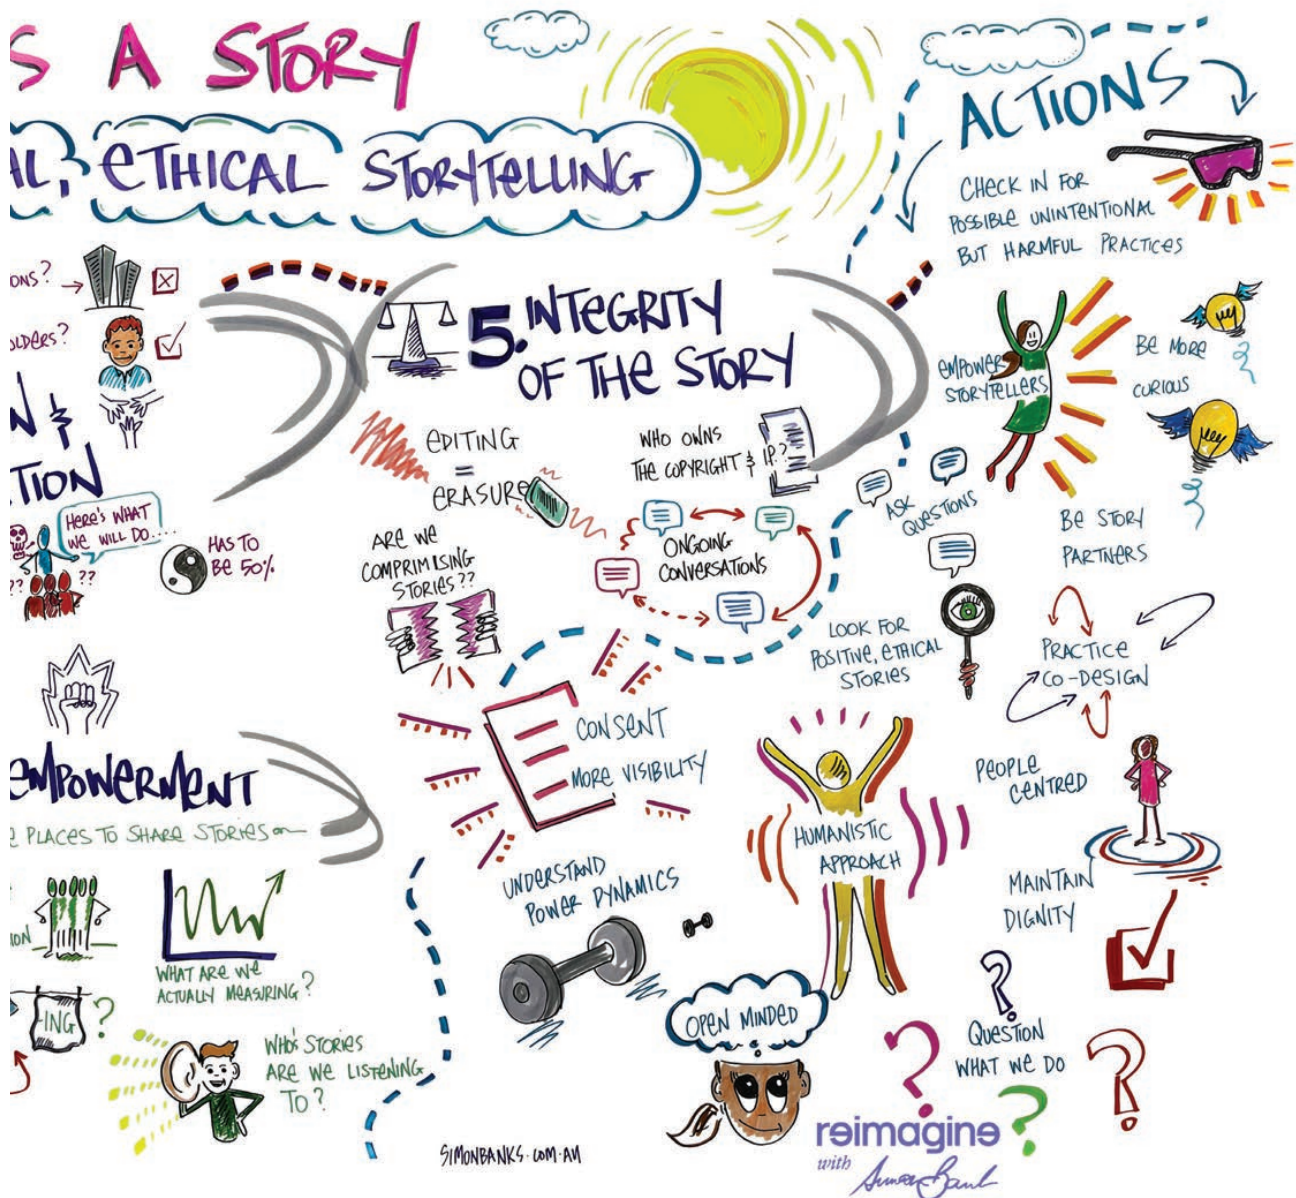 S A STORY
AL, ETHICAL STORYTELLING
ONS?
OLDERS?
N &
TION
HERE'S WHAT
WE WILL DO....
??
??
HAS TO
BE 50%
EMPOWERMENT
E PLACES TO SHARE STORIES on
ION
WHAT ARE WE
ACTUALLY MEASURING?
-ING
?
WHO'S STORIES
ARE WE LISTENING
TO?
5. INTEGRITY
OF THE STORY
EDITING
=
ERASURE
WHO OWNS
THE COPYRIGHT & I.P.?
ARE WE
COMPRIMISING
STORIES??
ONGOING
CONVERSATIONS
CONSENT
MORE VISIBILITY
UNDERSTAND
POWER DYNAMICS
OPEN MINDED
HUMANISTIC
APPROACH
ACTIONS
CHECK IN FOR
POSSIBLE UNINTENTIONAL
BUT HARMFUL PRACTICES
EMPOWER
STORYTELLERS
BE MORE
CURIOUS
ASK
QUESTIONS
BE STORY
PARTNERS
LOOK FOR
POSITIVE, ETHICAL
STORIES
PRACTICE
CO-DESIGN
PEOPLE
CENTRED
MAINTAIN
DIGNITY
?
QUESTION
WHAT WE DO
?
?
?
SIMONBANKS.COM.AU
reimagine
with
Simon Banks